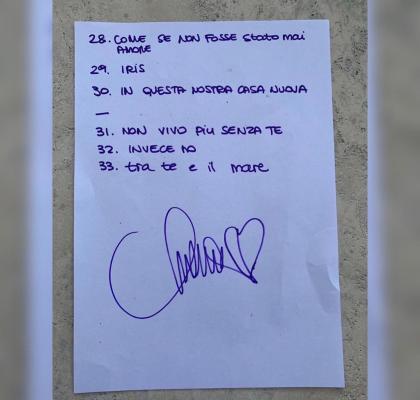 28. COME SE NON FOSSE stato mai
AMORE
29. IRIS
30. IN QUESTA NOSTRA CASA NUOVA
—
31. NON VIVO PIU SENZA TE
32. INVECE NO
33. tra te e il mare